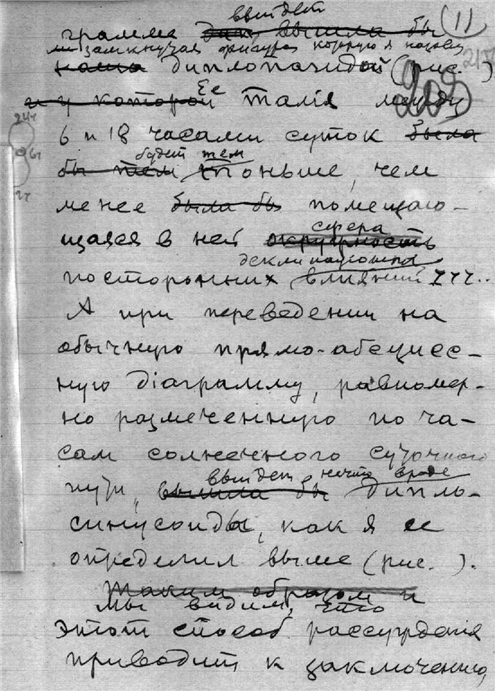 выйдет
грамме так вышла бы (11)
ли замкнутая фигура которую я назову
наша диплопахидой (рис. )
203
и у которой Ее талія между
24ч
6 и 18 часами суток была
6ч
будет тем
бы тем тоньше, чем
менее была бы помещаю-
сфера
щаяся в ней окружность
посторонних влияний
А при переведении на
обычную прямо-абсцисс-
ную діаграмму, равномер-
но размеченную по ча-
сам солнечного суточного
выйдет нечто вроде
пути, вышла бы дипло-
синусоида, как я ее
определил выше (рис. ).
Таким образом и
мы видим, что
этот способ рассуждения
приводит к заключению,